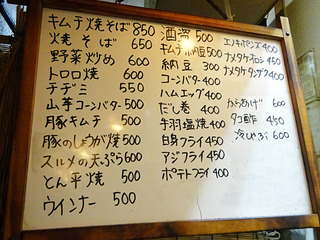 キムチ焼そば 850
焼そば 650
野菜炒め 600
トロロ焼 600
チヂミ 550
山芋コーンバター 500
豚キムチ 500
豚のしょうが焼 500
スルメの天ぷら 600
とん平焼 500
ウインナー 500
酒盗 500
キムチ納豆 500
納豆 300
コーンバター 400
ハムエッグ 400
だし巻 400
手羽塩焼 400
白身フライ 450
アジフライ 450
ポテトフライ 400
エノキポンズ 400
ナメタケオロシ 450
ナメタケタンザク 400
からあげ 600
タコ酢 450
冷しゃぶ 600